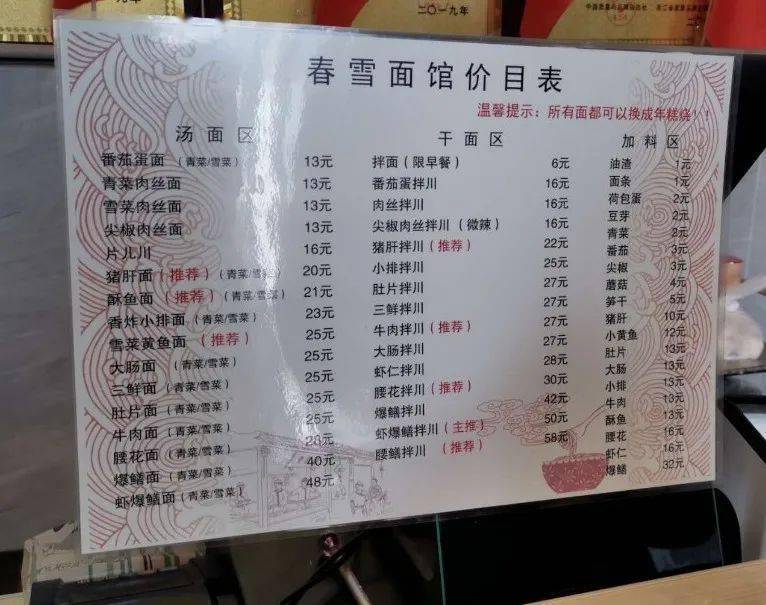 年
二〇一九年
春雪面馆价目表
温馨提示：所有面都可以换成年糕烧！！
汤面区
番茄蛋面（青菜/雪菜） 13元
青菜肉丝面 13元
雪菜肉丝面 13元
尖椒肉丝面 13元
片儿川 16元
猪肝面（推荐）（青菜/雪菜） 20元
酥鱼面（推荐）（青菜/雪菜） 21元
香炸小排面（青菜/雪菜） 23元
雪菜黄鱼面（推荐） 25元
大肠面（青菜/雪菜） 25元
三鲜面（青菜/雪菜） 25元
肚片面（青菜/雪菜） 25元
牛肉面（青菜/雪菜） 25元
腰花面（青菜/雪菜） 28元
爆鳝面（青菜/雪菜） 40元
虾爆鳝面（青菜/雪菜） 48元
干面区
拌面（限早餐） 6元
番茄蛋拌川 16元
肉丝拌川 16元
尖椒肉丝拌川（微辣） 16元
猪肝拌川（推荐） 22元
小排拌川 25元
肚片拌川 27元
三鲜拌川 27元
牛肉拌川（推荐） 27元
大肠拌川 27元
虾仁拌川 28元
腰花拌川（推荐） 30元
爆鳝拌川 42元
虾爆鳝拌川（主推） 50元
腰鳝拌川（推荐） 58元
加料区
油渣 1元
面条 1元
荷包蛋 2元
豆芽 2元
青菜 2元
番茄 3元
尖椒 3元
蘑菇 4元
笋干 5元
猪肝 10元
小黄鱼 12元
肚片 13元
大肠 13元
小排 13元
牛肉 13元
酥鱼 13元
腰花 16元
虾仁 16元
爆鳝 32元